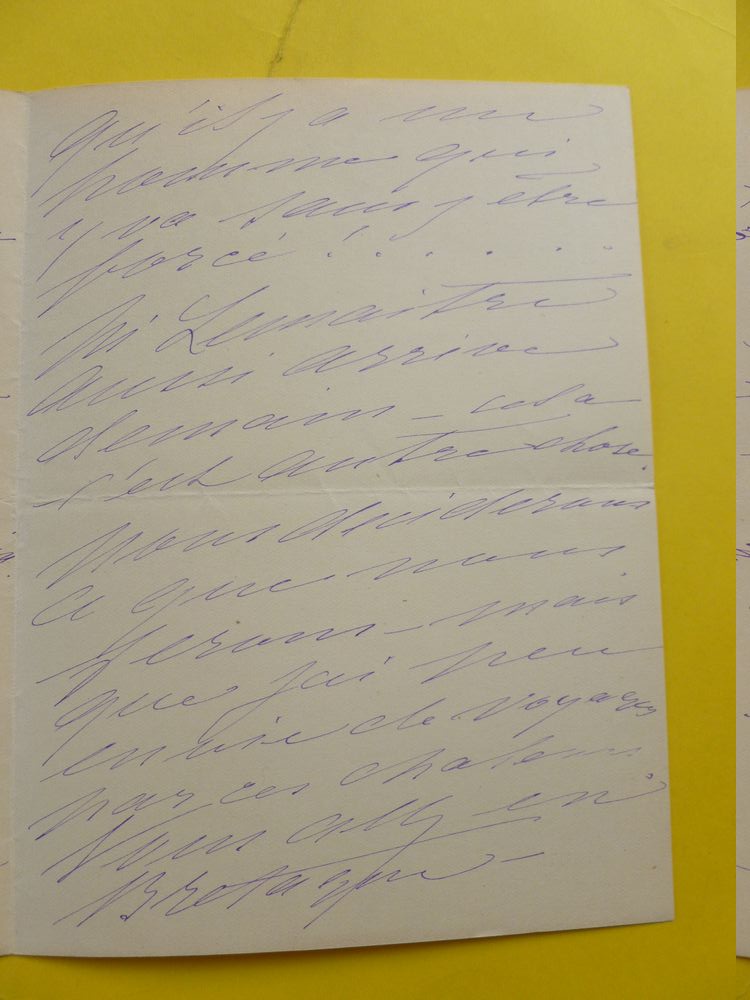 qu'il y a un
homme qui
y va sans y être
forcé ! . . . . .
si Lemaitre
aussi arrive
demain – cela
c'est autre chose.
nous déciderons
ce que nous
ferons – mais
que j'ai peu
envie de voyages
par ces chaleurs
Vous allez en
Bretagne –